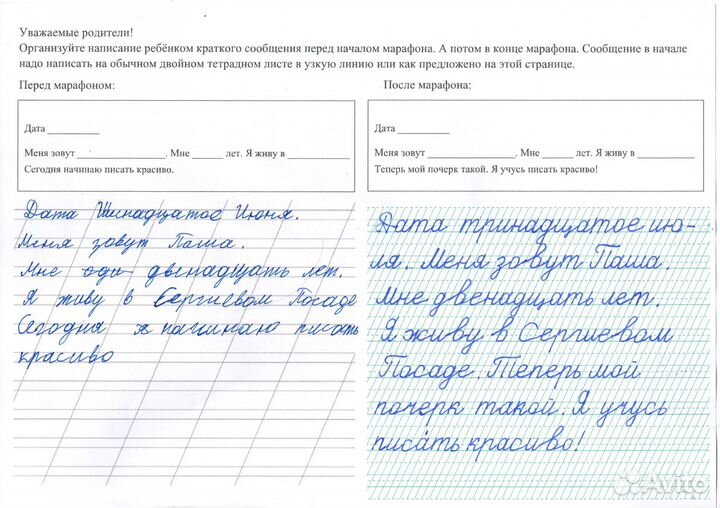 Уважаемые родители!
Организуйте написание ребёнком краткого сообщения перед началом марафона. А потом в конце марафона. Сообщение в начале
надо написать на обычном двойном тетрадном листе в узкую линию или как предложено на этой странице.
Перед марафоном:
Дата __________
Меня зовут _________________. Мне ______ лет. Я живу в ____________
Сегодня начинаю писать красиво.
Дата Шеснадцатое Июня.
Меня зовут Паша.
Мне оди двенадцать лет.
Я живу в Сергиевом Посаде
Сегодня я начинаю писать
красиво
После марафона:
Дата __________
Меня зовут _________________. Мне ______ лет. Я живу в ___________
Теперь мой почерк такой. Я учусь писать красиво!
Дата тринадцатое ию-
ля. Меня зовут Паша.
Мне двенадцать лет.
Я живу в Сергиевом
Посаде. Теперь мой
почерк такой. Я учусь
писать красиво!
Avito